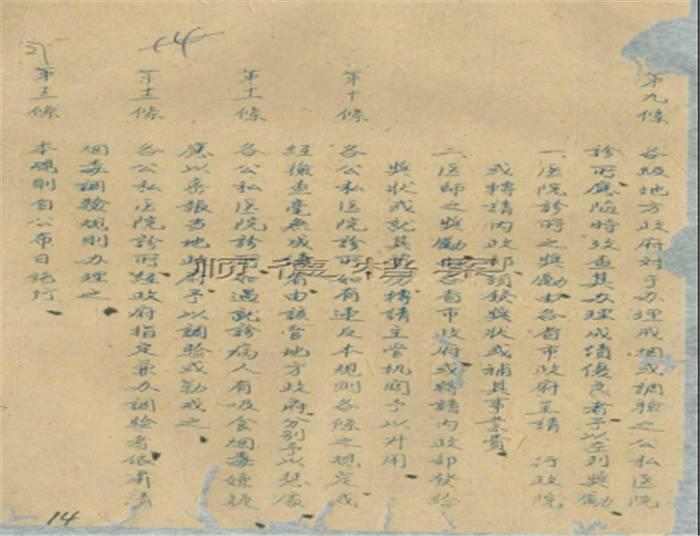 14
第九條 各級地方政府对于办理戒烟或調驗之公私医院
診所應随時攷查其办理成績優良者予以左列奬勵
一医院診所之奬勵由各省市政府呈請 行政院
或轉請内政部頒發奬状或補其事業費
二医師之奬勵由各省市政府或轉請内政部發給
奬狀或就其 轉請主管机関予以升用
第十條 各公私医院診所如有違反本規則各條之規定或
經檢查毫無成績者由該管地方政府分别予以惩處
第十一條 各公私医院診所如遇就診病人有吸食烟毒嫌疑
應以密報当地政府予以調驗或勒戒之
第十二條 各公私医院診所經政府指定兼办調驗者依肅清
烟毒調驗規則办理之
第十三條 本規則自公布日施行
顺德档案
14